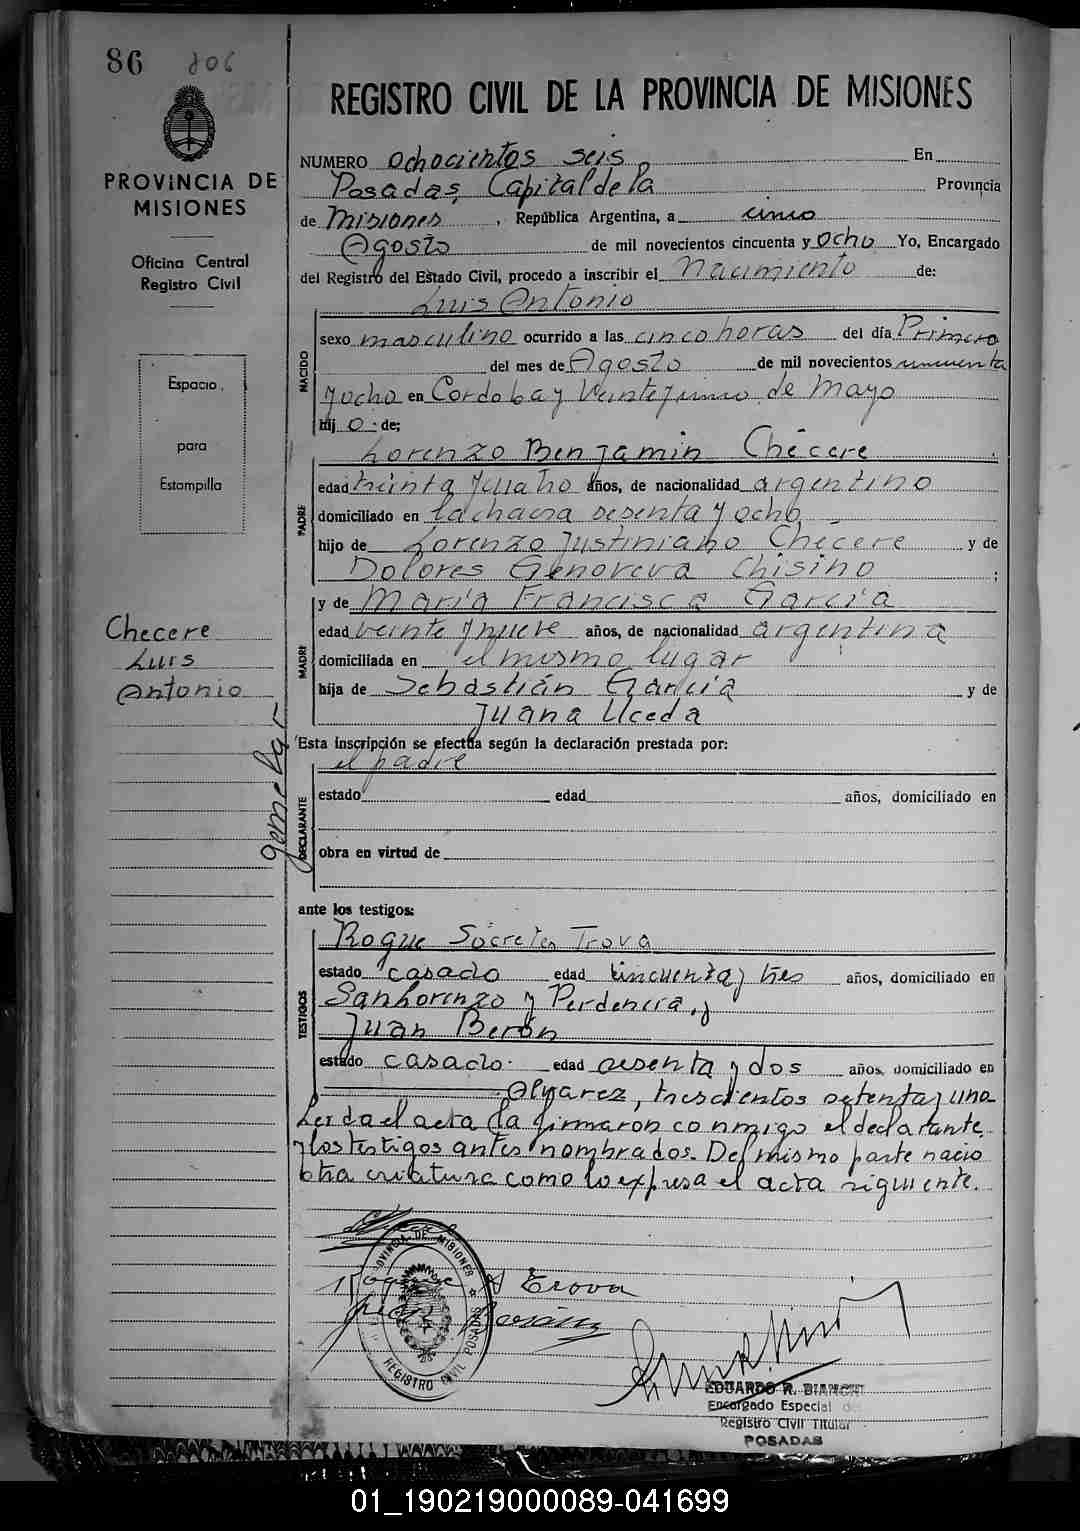 86 806
PROVINCIA DE
MISIONES
Oficina Central
Registro Civil
Espacio
para
Estampilla
Checere
Luis
Antonio
gemelar
REGISTRO CIVIL DE LA PROVINCIA DE MISIONES
NUMERO Ochocientos seis En
Posadas, Capital de la Provincia
de Misiones, República Argentina, a cinco
Agosto de mil novecientos cincuenta y Ocho Yo, Encargado
del Registro del Estado Civil, procedo a inscribir el Nacimiento de:
Luis Antonio
NACIDO
sexo masculino ocurrido a las cinco horas del día Primero
del mes de Agosto de mil novecientos cincuenta
y ocho en Cordoba y Veinte y cinco de Mayo
hij o de;
Lorenzo Benjamin Chécere
PADRE
edad treinta y cuatro años, de nacionalidad argentino
domiciliado en la chacra sesenta y ocho
hijo de Lorenzo Justiniano Chécere y de
Dolores Genoveva Chisino;
y de María Francisca García
MADRE
edad veinte y nueve años, de nacionalidad argentina
domiciliada en el mismo lugar
hija de Sebastián García y de
Juana Uceda
Esta inscripción se efectúa según la declaración prestada por:
el padre
DECLARANTE
estado edad años, domiciliado en
obra en virtud de
ante los testigos:
TESTIGOS
Roque Sócrates Trova
estado casado edad cincuenta y tres años, domiciliado en
San Lorenzo y Perdenera, y
Juan Berón
estado casado edad sesenta y dos años, domiciliado en
Alvarez, trescientos setenta y uno
Leida el acta la firmaron conmigo el declarante
y los testigos antes nombrados. Del mismo parte nacio
otra criatura como lo expresa el acta siguiente.
Roque S Trova
PROVINCIA DE MISIONES
REGISTRO CIVIL POSADAS
EDUARDO R. BIANCHI
Encargado Especial de
Registro Civil Titular
POSADAS
01_190219000089-041699